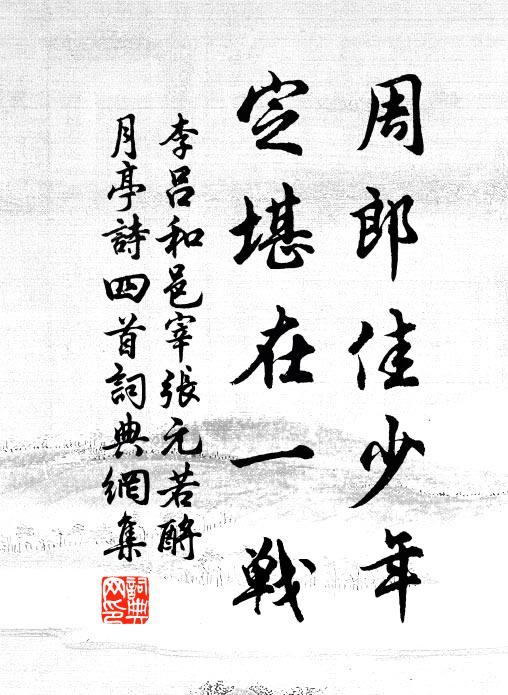 周郎佳少年
定堪在一戰
李呂和邑宰張元若酹
月亭詩四首詞典網集
詞典網印